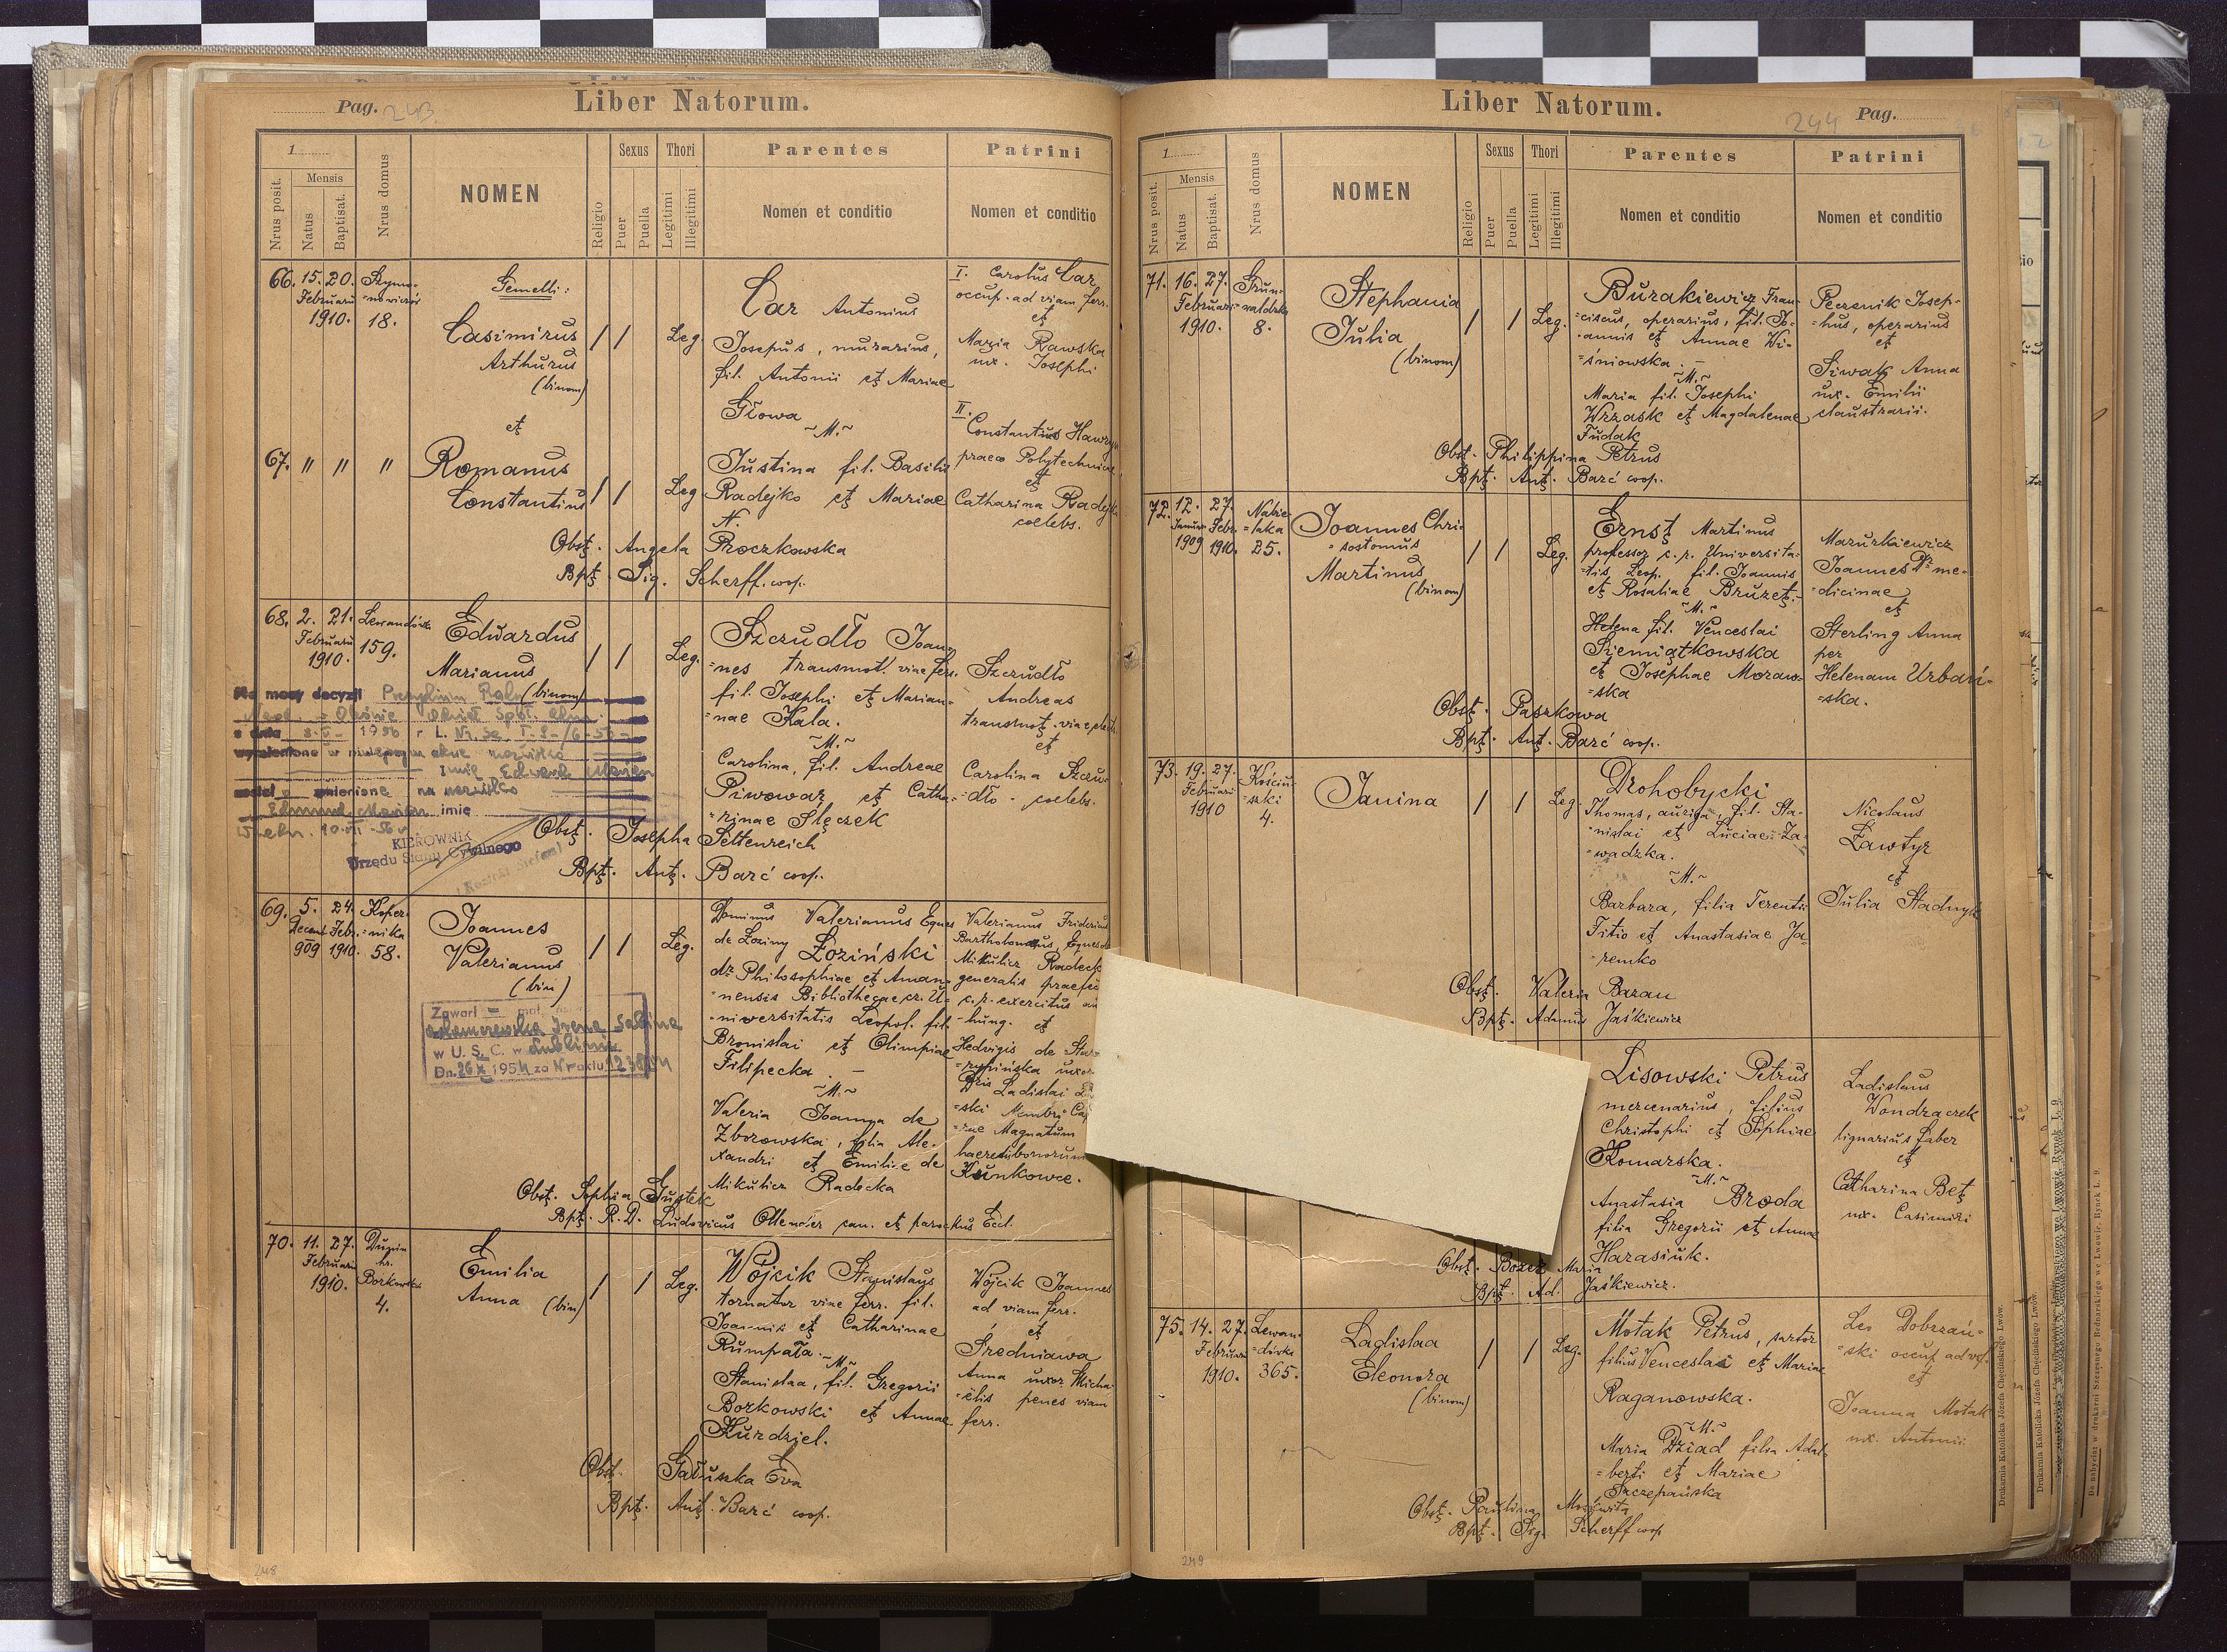 Pag. 243
Liber Natorum.
1
Nrus posit.
Mensis
Natus
Baptisat.
Nrus domus
NOMEN
Religio
Sexus
Puer
Puella
Thori
Legitimi
Illegitimi
Parentes
Nomen et conditio
Patrini
Nomen et conditio
66. 15. 20. Szymo-
Februarii =nowiczów
1910. 18.
Gemelli:
Casimirus
Arthurus
(binom)
et
/ / Leg.
Car Antonius
Josepus, murarius,
fil. Antonii et Mariae
Głowa
~M.~
I. Carolus Car
occup. ad viam ferr.
et
Maria Rawska
ux. Josephi
67. " " "
Romanus
Constantius
/ / Leg
Justina fil. Basilii
Radejko et Mariae
N.
II.
Constantius
praeo
et
Catharina
coelebs.
Obst. Angela Proczkowska
Bpt. Sig. Scherff. coop.
68. 2. 21. Lewandówka
Februarii
1910. 159.
Edwardus
Marianus
(binom)
/ / Leg.
Szczudło Joan-
=nes transmot. viae ferr.
fil. Josephi et Marian-
=nae Kala.
~M.~
Carolina, fil. Andreae
Piwowar et Catha-
=rinae Ślęczek
Szczudło
Andreas
transmot. viae
et
Carolina Szczu-
=dło - coelebs.
Na mocy decyzji
z dnia 1956 r L.
imię
KIEROWNIK
Urzędu Stanu Cywilnego
Obst. Josepha Seltenreich
Bpt. Ant. Barć coop.
69. 5. 24. Koper-
Decem. Febr. =nika
909 1910. 58.
Joannes
Valerianus
(bin)
/ / Leg.
Dominus Valerianus Eques
de Łoziny Łoziński
dr. Philosophiae et Aman-
=nensis Bibliothecae c.r. U-
=niversitatis Leopol. fil.
Bronislai et Olimpiae
Filipecka. —
~M.~
Valeria Joanna de
Zborowska, filia Ale-
xandri et Emiliae de
Mikulicz Radecka
Valerianus Fridericus
Bartholomaeus, Eques de
Mikulicz Radecki
generalis
c.r. exercitus
-hung. et
Hedvigis de
Ladislai
=ski Membri
=rae Magnatum
haeredis bonorum
Kunkowce.
Zawarł
Irena Sabina
w U. S. C. w Lublinie
Dn. 26 X 1954 za Nr aktu
Obst. Sophia Gustek
Bpt. R. D. Ludovicus Ollender can. et parochus Eccl.
70. 11. 27. Dunin
Februarii hr.
1910. Borkowskich
4.
Emilia
Anna (bin)
/ / Leg.
Wójcik Stanislaus
tornator viae ferr. fil.
Joannis et Catharinae
Rumpała.
~M~
Stanislaa, fil. Gregorii
Borkowski et Annae
Kurdziel.
Wójcik Joannes
ad viam ferr.
et
Średniawa
Anna uxor Micha-
=elis penes viam
ferr.
Obst. Gałuszka Eva
Bpt. Ant. Barć coop.
248
Liber Natorum.
244 Pag.
1
Nrus posit.
Mensis
Natus
Baptisat.
Nrus domus
NOMEN
Religio
Sexus
Puer
Puella
Thori
Legitimi
Illegitimi
Parentes
Nomen et conditio
Patrini
Nomen et conditio
71. 16. 27. Grun-
Februarii =waldzka
1910. 8.
Stephania
Julia
(binom)
/ / Leg.
Burakiewicz Fran-
=ciscus, operarius, fil. Jo-
=annis et Annae Wi-
=śniowska. —
~M.~
Maria fil. Josephi
Wrzask et Magdalenae
Fudak
Peczenik Josep-
=hus, operarius
et
Siwak Anna
ux. Emilii
claustrarii.
Obst. Philippina Petrus
Bpt. Ant. Barć coop.
72. 12. 27. Nabie-
Januar. Febr. =laka
1909 1910. 25.
Joannes Chri-
=sostomus
Martinus
(binom)
/ / Leg.
Ernst Martinus
professor c.r. Universita-
=tis Leop. fil. Joannis
et Rosaliae Bruzet.-
~M.~
Helena fil. Venceslai
Siemiątkowska
et Josephae Moraw-
=ska
Mazurkiewicz
Joannes Dr. me-
=dicinae
et
Sterling Anna
per
Helenam Urbań-
=ska.
Obst. Paszkowa
Bpt. Ant. Barć coop.
73. 19. 27. Kościu-
Februarii =szki
1910 4.
Janina
/ / Leg.
Drohobycki
Thomas, auriga, fil. Sta-
=nislai et Luciae Za-
=wadzka.
~M.~
Barbara, filia Terentii
Titio et Anastasiae Ja-
=remko
Nicolaus
Ławtyz
et
Julia Stadnyk
Obst. Valeria Baran
Bpt. Adamus Jaśkiewicz
Lisowski Petrus
mercenarius, filius
Christophi et Sophiae
Komarska.
~M.~
Anastasia Broda
filia Gregorii et Annae
Harasiuk.
Ladislaus
Wondraczek
lignarius faber
et
Catharina Bet
ux. Casimiri
Obst. Bozer Maria
Bpt. Ad. Jaśkiewicz.
75. 14. 27. Lewan-
Februarii =dówka
1910. 365.
Ladislaa
Eleonora
(binom)
/ / Leg.
Motak Petrus, sartor
filius Venceslai et Mariae
Raganowska.
~M.~
Maria Dziad filia Adal-
=berti et Mariae
Szczepańska
Leo Dobrzań-
=ski occup. ad v.f.
et
Joanna Motak
ux. Antonii
Obst. Paulina Moskwita
Bpt. Sig. Scherff coop
249
Drukarnia Katolicka Józefa Chęcińskiego Lwów.
Drukarnia Katolicka Józefa Chęcińskiego Lwów.
Do nabycia w drukarni Szczęsnego Bednarskiego we Lwowie, Rynek L. 9.